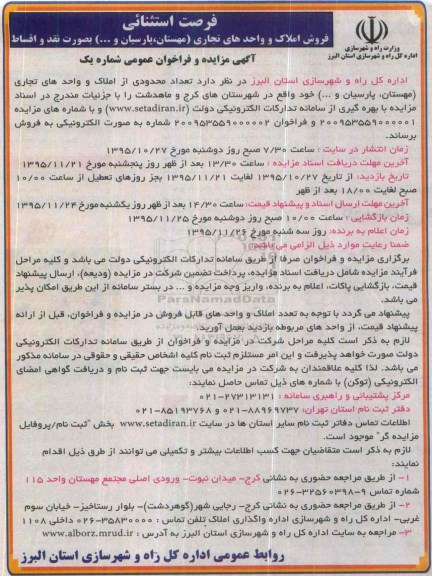 فرصت استثنائی
فروش املاک و واحد های تجاری (مهستان،پارسیان و ...) بصورت نقد و اقساط
وزارت راه و شهرسازی
اداره کل راه و شهرسازی استان البرز
آگهی مزایده و فراخوان عمومی شماره یک
اداره کل راه و شهرسازی استان البرز در نظر دارد تعداد محدودی از املاک و واحد های تجاری
(مهستان، پارسیان و ...) خود واقع در شهرستان های کرج و ماهدشت را با جزئیات مندرج در اسناد
مزایده با بهره گیری از سامانه تدارکات الکترونیکی دولت (www.setadiran.ir) و با شماره های مزایده
۲۰۰۹۵۳۵۵۹۰۰۰۰۰۱ و فراخوان ۲۰۰۹۵۳۵۵۹۰۰۰۰۰۲ شماره به صورت الکترونیکی به فروش
برساند.
زمان انتشار در سایت : ساعت ۷/۳۰ صبح روز دوشنبه مورخ ۱۳۹۵/۱۰/۲۷
آخرین مهلت دریافت اسناد مزایده : ساعت ۱۳/۳۰ بعد از ظهر روز پنجشنبه مورخ ۱۳۹۵/۱۱/۲۱
تاریخ بازدید: از تاریخ ۱۳۹۵/۱۰/۲۷ لغایت ۱۳۹۵/۱۱/۲۱ بجز روزهای تعطیل از ساعت ۱۰/۰۰
صبح لغایت ۱۸/۰۰ بعد از ظهر
آخرین مهلت ارسال اسناد و پیشنهاد قیمت: ساعت ۱۴/۳۰ بعد از ظهر روز یکشنبه مورخ ۱۳۹۵/۱۱/۲۴
زمان بازگشایی : ساعت ۱۰/۰۰ صبح روز دوشنبه مورخ ۱۳۹۵/۱۱/۲۵
زمان اعلام به برنده: روز سه شنبه مورخ ۱۳۹۵/۱۱/۲۶
ضمنا رعایت موارد ذیل الزامی می باشد:
برگزاری مزایده و فراخوان صرفا از طریق سامانه تدارکات الکترونیکی دولت می باشد و کلیه مراحل
فرآیند مزایده شامل دریافت اسناد مزایده، پرداخت تضمین شرکت در مزایده (ودیعه)، ارسال پیشنهاد
قیمت، بازگشایی پاکات، اعلام به برنده، واریز وجه مزایده و ... در بستر سامانه از این طریق امکان پذیر
می باشد.
ParsNamadData
پیشنهاد می گردد با توجه به تعدد املاک و واحد های قابل فروش در مزایده و فراخوان، قبل از ارائه
پیشنهاد قیمت، از واحد های مربوطه بازدید بعمل آورید.
لازم به ذکر است کلیه مراحل شرکت در مزایده و فراخوان از طریق سامانه تدارکات الکترونیکی
دولت صورت خواهد پذیرفت و این امر مستلزم ثبت نام کلیه اشخاص حقیقی و حقوقی در سامانه مذکور
می باشد. لذا کلیه علاقمندان به شرکت در مزایده می بایست جهت ثبت نام و دریافت گواهی امضای
الکترونیکی (توکن) با شماره های ذیل تماس حاصل نمایند:
مرکز پشتیبانی و راهبری سامانه : ۲۷۳۱۳۱۳۱-۰۲۱
دفتر ثبت نام استان تهران: ۸۸۹۶۹۷۳۷-۰۲۱ و ۸۵۱۹۳۷۶۸-۰۲۱
اطلاعات تماس دفاتر ثبت نام سایر استان ها در سایت www.setadiran.ir بخش "ثبت نام/پروفایل
مزایده گر" موجود است.
لازم به ذکر است متقاضیان جهت کسب اطلاعات بیشتر و تکمیلی می توانند از طرق ذیل اقدام
نمایند:
۱- از طریق مراجعه حضوری به نشانی کرج- میدان نبوت- ورودی اصلی مجتمع مهستان واحد ۱۱۵
شماره تماس ۹-۳۲۵۶۰۳۹۸-۰۲۶
۲- از طریق مراجعه حضوری به نشانی کرج- رجایی شهر(گوهردشت)- بلوار رستاخیز- خیابان سوم
غربی- اداره کل راه و شهرسازی اداره واگذاری املاک تلفن تماس : ۳۵۸۳۰۰۰۰-۰۲۶ داخلی ۱۱۰۸
۳- مراجعه به سایت اداره کل راه و شهرسازی استان البرز به آدرس : www.alborz.mrud.ir
روابط عمومی اداره کل راه و شهرسازی استان البرز